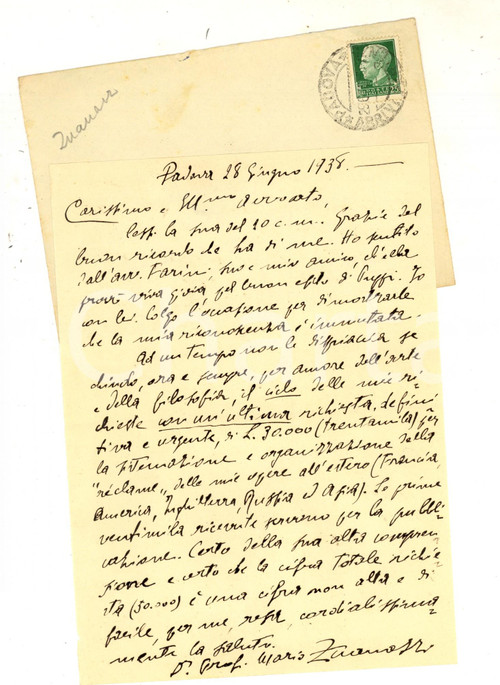 Padova 28 Giugno 1938.
Carissimo e Ill.mo avvocato,
la sua del 20 c.m. Grazie del
buon ricordo che ha di me. Ho sentito
dall'avv. Farini, suo e mio amico, ch'ella
provò viva gioia pel buon esito di
con lei. Colgo l'occasione per dimostrarle
che la mia riconoscenza è immutata.
Ad un tempo non le dispiaccia se
chiudo, ora e sempre, per amore dell'arte
e della filosofia, il ciclo delle mie ri-
chieste con un'ultima richiesta, defini
tiva e urgente, di L. 30.000 (trentamila) per
la sistemazione e organizzazione della
"réclame" delle mie opere all'estero (Francia,
America, Inghilterra Russia ed Asia). Le prime
ventimila ricevute servono per la pubbli-
cazione. Certo della sua alta compren-
sione e certo che la cifra totale richie-
sta (50.000) è una cifra non alta e di
facile, per me, resa, cordialissima-
mente la saluto.
D. Prof. Mario
PADOVA